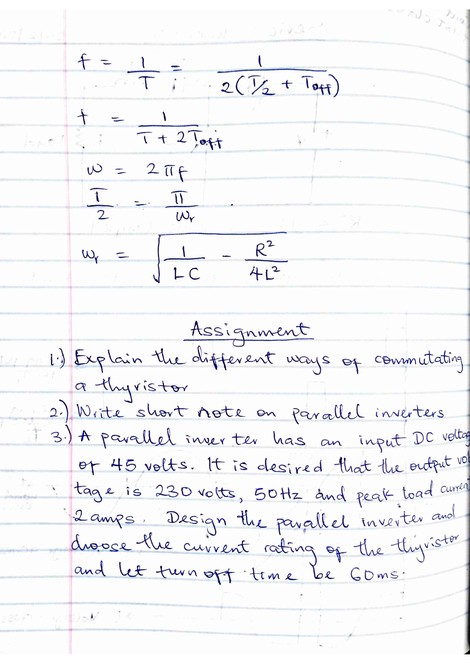 f = 1/T = 1/2(T/2 + Toff)
f = 1/T + 2Toff
w = 2πf
T/2 = π/wr
wr = √1/LC - R²/4L²
Assignment
1.) Explain the different ways of commutating
a thyristor
2.) Write short note on parallel inverters
3.) A parallel inverter has an input DC voltag
of 45 volts. It is desired that the output vol
tage is 230 volts, 50Hz and peak load curren
2 amps. Design the parallel inverter and
choose the current rating of the thyristor
and let turn off time be 60ms.